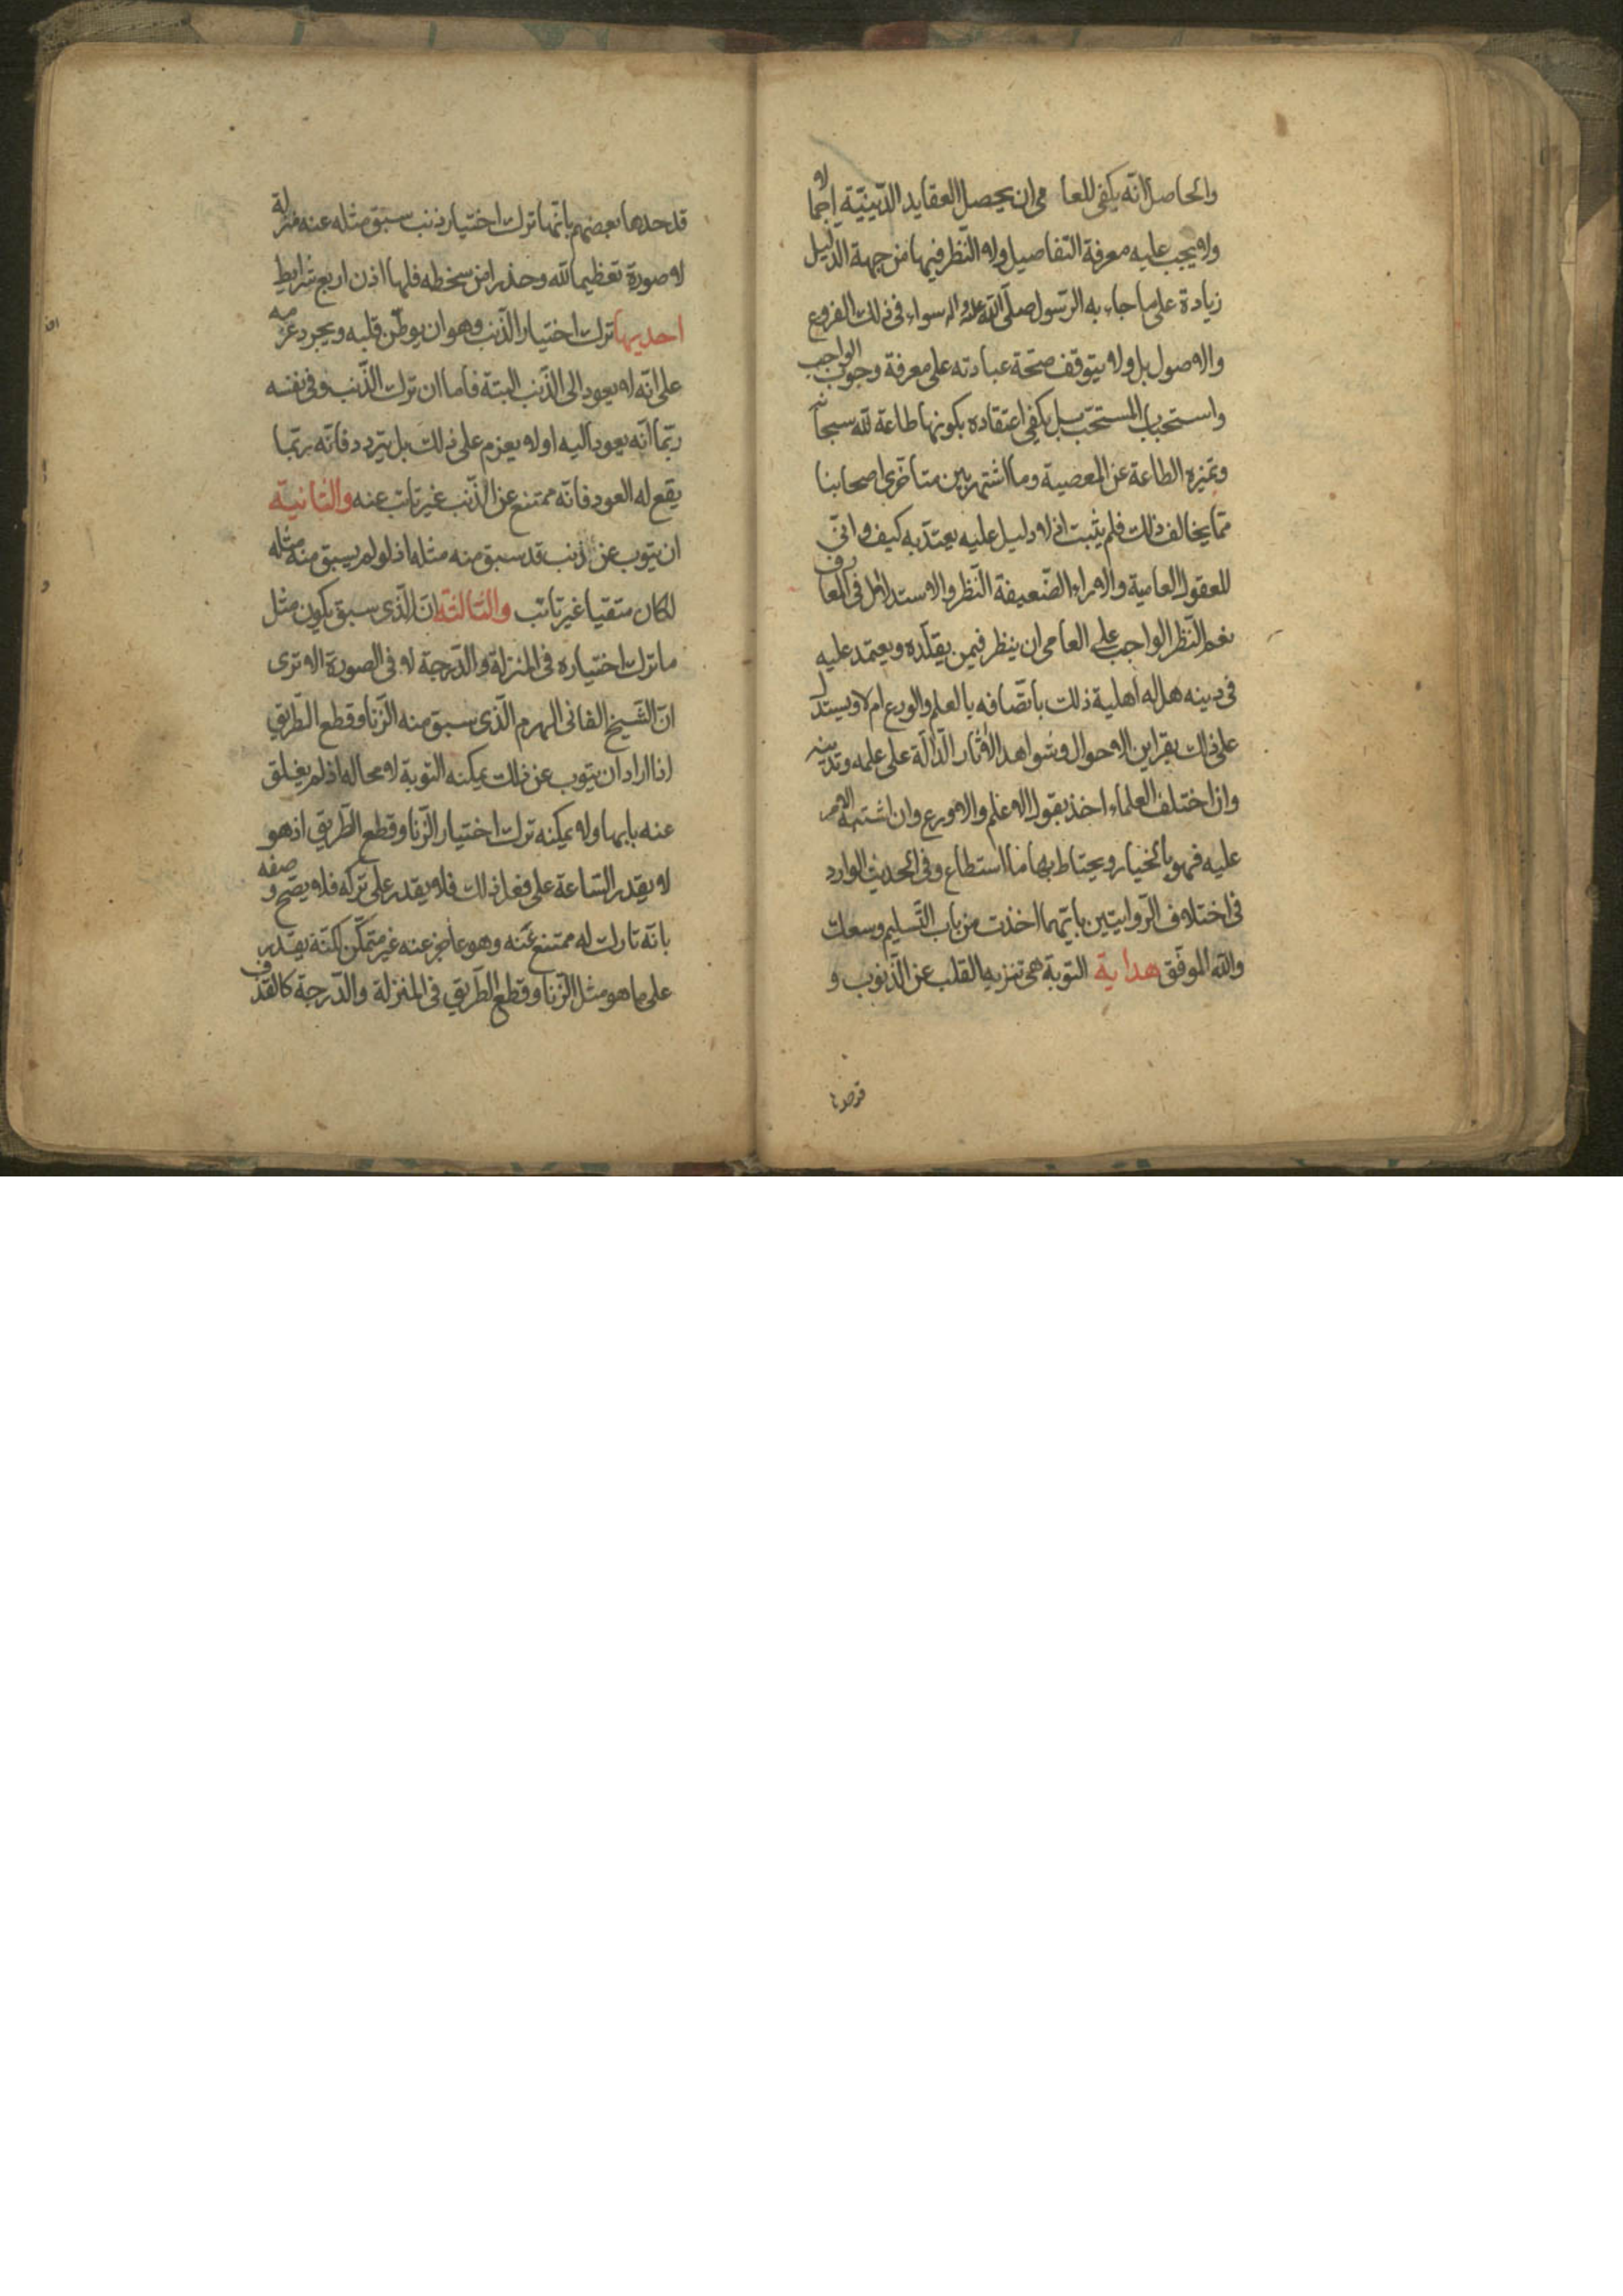 والحاصل انّه يكفى للعا مى ان يحصل العقايد الدّينيّة اجمالا
ولا يجب عليه معرفة التفاصيل ولا النّظر فيها من جهة الدّليل
زيادة على ما جاء به الرّسول صلّى اللّه عليه واله سواء فى ذلك الفروع
والاصول بل ولا يتوقف صحّة عبادته على معرفة وجوب الواجب
واستحباب المستحبّ بل يكفى اعتقاده بكونها طاعة للّه سبحانه
وتميزه الطاعة عن المعصية وما اشتهر بين متأخرى اصحابنا
ممّا يخالف ذلك فلم يثبت اذ لا دليل عليه يعتدّ به كيف وانّى
للعقول العامية والاراء الضّعيفة النّظر والاستدلال فى المعارف
نعم النّظر الواجب على العامى ان ينظر فيمن يقلّده ويعتمد عليه
فى دينه هل له اهلية ذلك باتّصافه بالعلم والورع ام لا ويستدل
على ذلك بقراين الاحوال وشواهد الآثار الدّالّة على علمه وتديّنه
واذا اختلف العلماء اخذ بقول الاعلم والاورع وان اشتبه الامر
عليه فهو بالخيار ويحتاط بها ما استطاع وفى الحديث الوارد
فى اختلاف الرّوايتين بايّهما اخذت من باب التّسليم وسعك
واللّه الموفّق هداية التوبة هى تنزيه القلب عن الذّنوب و
قد حدها
قد حدها بعضهم بانّها ترك اختيار ذنب سبق مثله عنه منزلة
لا صورة تعظيما للّه وحذرا من سخطه فلها اذن اربع شرايط
احديها ترك اختيار الذّنب وهو ان يوطّن قلبه ويجرد عزمه
على انّه لا يعود الى الذّنب البتة فاما ان ترك الذّنب وفى نفسه
ربّما انّه يعود اليه اولا يعزم على ذلك بل يتردد فانّه ربّما
يقع له العود فانّه ممتنع عن الذّنب غير تائب عنه والثانية
ان يتوب عن ذنب قد سبق منه مثله اذ لو لم يسبق منه مثله
لكان متقيا غير تائب والثالثة انّ الّذى سبق يكون مثل
ما ترك اختياره فى المنزلة والدّرجة لا فى الصورة الا ترى
انّ الشّيخ الفانى الهرم الّذى سبق منه الزّنا وقطع الطّريق
اذا اراد ان يتوب عن ذلك يمكنه التوبة لا محالة اذ لم يغلق
عنه بابها ولا يمكنه ترك اختيار الزّنا وقطع الطّريق اذ هو
لا يقدر السّاعة على فعل ذلك فلا يقدر على تركه فلا يصح وصفه
بانّه تارك له ممتنع عنه وهو عاجز عنه غير متمكّن لكنّه يقدر
على ما هو مثل الزّنا وقطع الطّريق فى المنزلة والدّرجة كالقذف